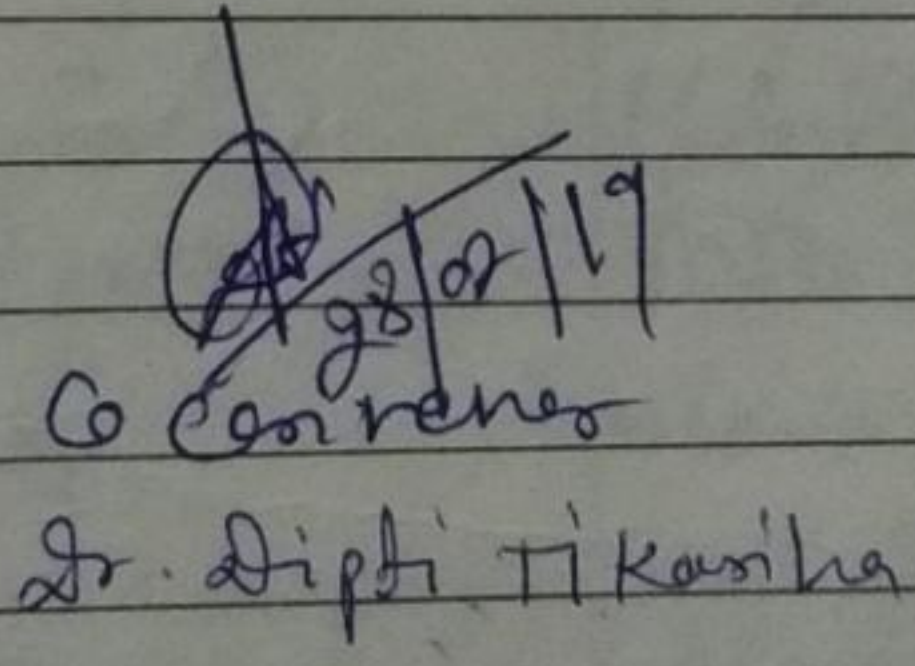 28/02/19
Co Convener
Dr. Dipti Tikariha